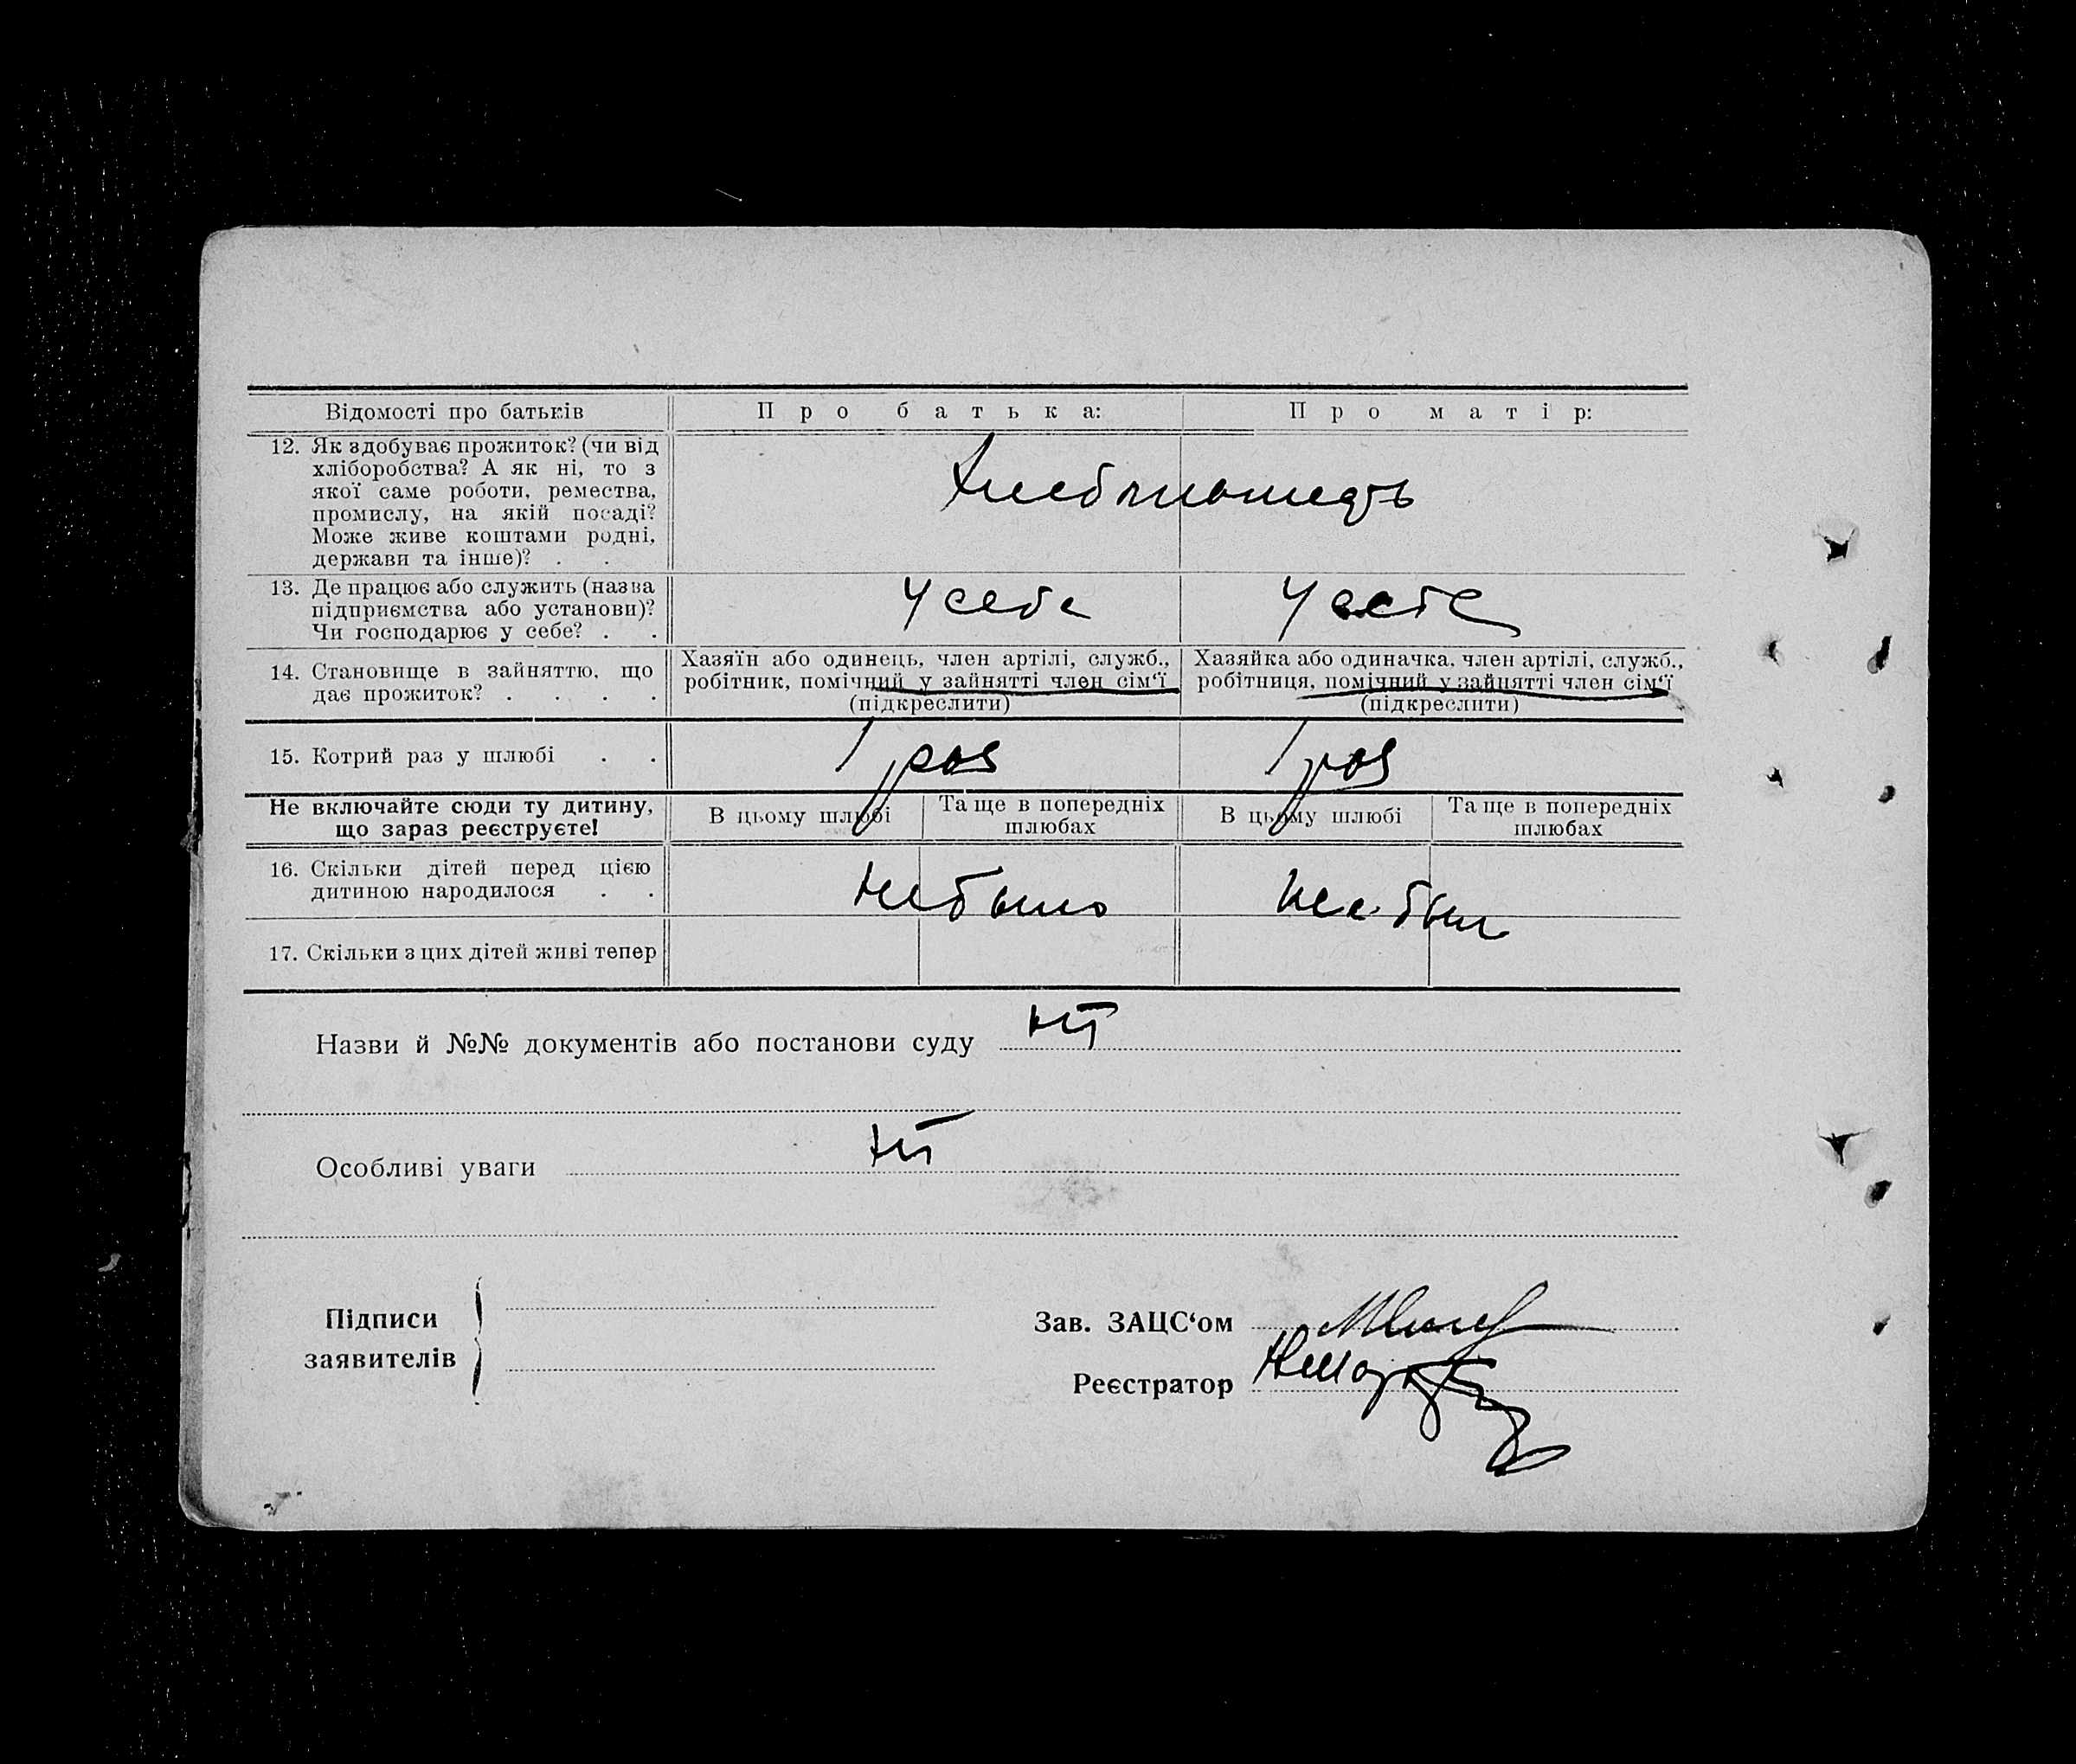 Відомості про батьків
Про батька:
Про матір:
12. Як здобуває прожиток? (чи від
хліборобства? А як ні, то з
якої саме роботи, ремества,
промислу, на якій посаді?
Може живе коштами родні,
держави та інше)? . .
13. Де працює або служить (назва
підприємства або установи)?
Чи господарює у себе? . .
У себе
У себе
14. Становище в зайняттю, що
дає прожиток? . . . .
Хазяїн або одинець, член артілі, служб.,
робітник, помічний у зайнятті член сім‘ї
(підкреслити)
Хазяйка або одиначка, член артілі, служб.,
робітниця, помічний у зайнятті член сім‘ї
(підкреслити)
15. Котрий раз у шлюбі . .
1 раз
1 раз
Не включайте сюди ту дитину,
що зараз реєструєте!
В цьому шлюбі
Та ще в попередніх
шлюбах
В цьому шлюбі
Та ще в попередніх
шлюбах
16. Скільки дітей перед цією
дитиною народилося . .
не было
не был
17. Скільки з цих дітей живі тепер
Назви й №№ документів або постанови суду
Особливі уваги
Підписи
заявителів
Зав. ЗАЦС‘ом
Реєстратор